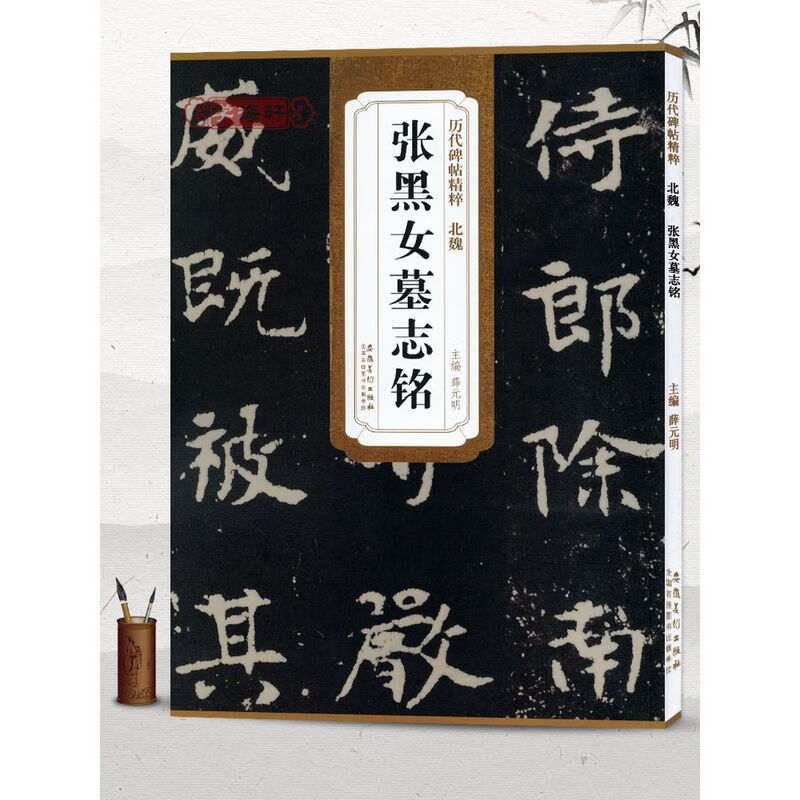 历代碑帖精粹 北魏
张黑女墓志铭
主编 薛元明
安徽美术出版社
全国百佳图书出版单位
侍郎除南
严
威既被其
历代碑帖精粹 北魏 张黑女墓志铭
主编 薛元明
安徽美术出版社
全国百佳图书出版单位